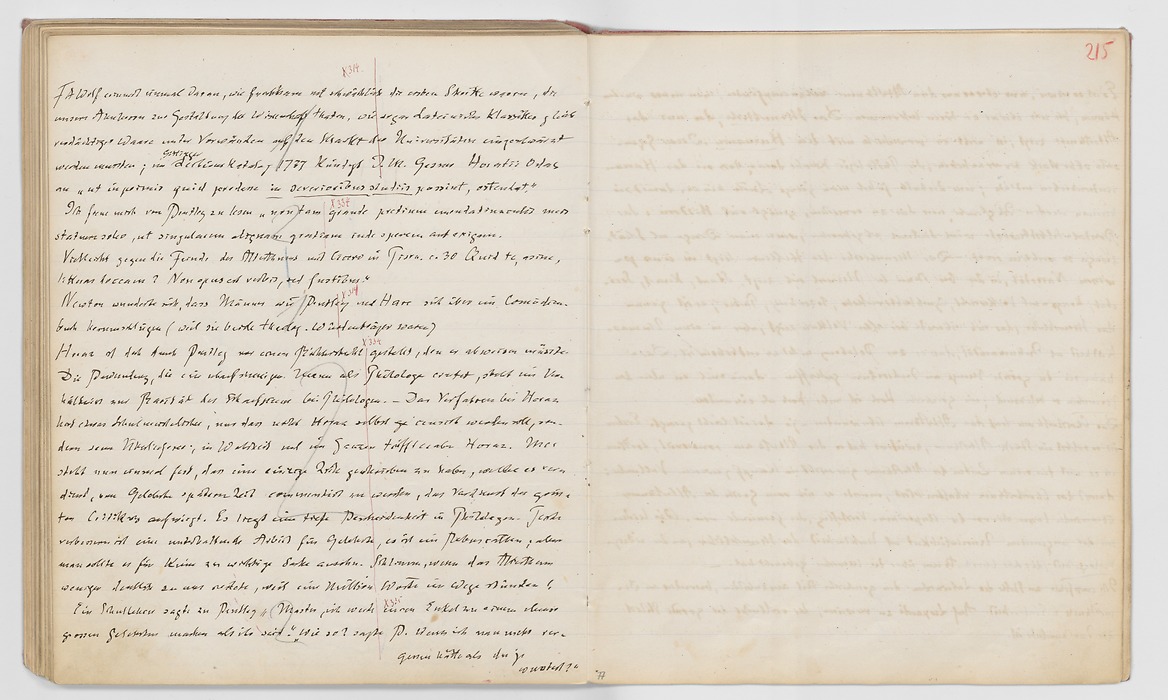 X 314.
215
FA Wolf erinnert einmal daran, wie furchtsam und schwächlich die ersten Schritte waren, die
unsere Ahnherren zur Gestaltung der Wissenschaft thaten, wie sogar die lateinischen Klassiker
verdächtige Waare unter Vorwänden auf den Markt der Universitäten eingeschwärzt
Götting.
werden mussten; im Lectionskatalog 1737 kündigt J. M. Gesner Horatii Odas
an „ut inprimis quid prodesse in severioribus studiis possint, ostendat."
X 334
Ich freue mich von Bentley zu lesen „non tam grande pretium emendatiunculis meis
statuere soleo, ut singularem aliquam gratiam inde sperem aut exigam.
Vielleicht gegen die Feinde des Alterthums mit Cicero in Pison. c. 30 Quid te, asine,
litteras doceam? Non opus est verbis, sed fustibus."
X 314
Newton wunderte sich, dass Männer wie Bentley und Hare sich über ein Comödien-
buch herumschlügen (weil sie beide theolog. Würdenträger waren)
X 334
Horaz ist durch Bentley vor einen Richterstuhl gestellt, den er abweisen müsste.
Die Bewunderung, die ein scharfsinniger Mann als Philologe erntet, steht im Ver-
hältniss zur Rarität des Scharfsinns bei Philologen. — Das Verfahren bei Horaz
hat etwas Schulmeisterliches, nur dass nicht Horaz selbst censirt werden soll, son-
dern seine Überlieferer; in Wahrheit und im Ganzen trifft es aber Horaz. Mir
steht nun einmal fest, dass eine einzige Zeile geschrieben zu haben, welche es ver-
dient, von Gelehrten späterer Zeit commentirt zu werden, das Verdienst des gröss-
ten Critikers aufwiegt. Es liegt eine tiefe Bescheidenheit im Philologen. Texte
verbessern ist eine unterhaltende Arbeit für Gelehrte, es ist ein Rebusrathen; aber
man sollte es für keine zu wichtige Sache ansehn. Schlimm, wenn das Alterthum
weniger deutlich zu uns redete, weil eine Million Worte im Wege stünden!
X 335
Ein Schullehrer sagte zu Bentley „Master, ich werde Euren Enkel zu einem ebenso
grossen Gelehrten machen als ihr seid." „Wie so? sagte B. Wenn ich nun mehr ver-
gessen hätte als du je
wusstest?"